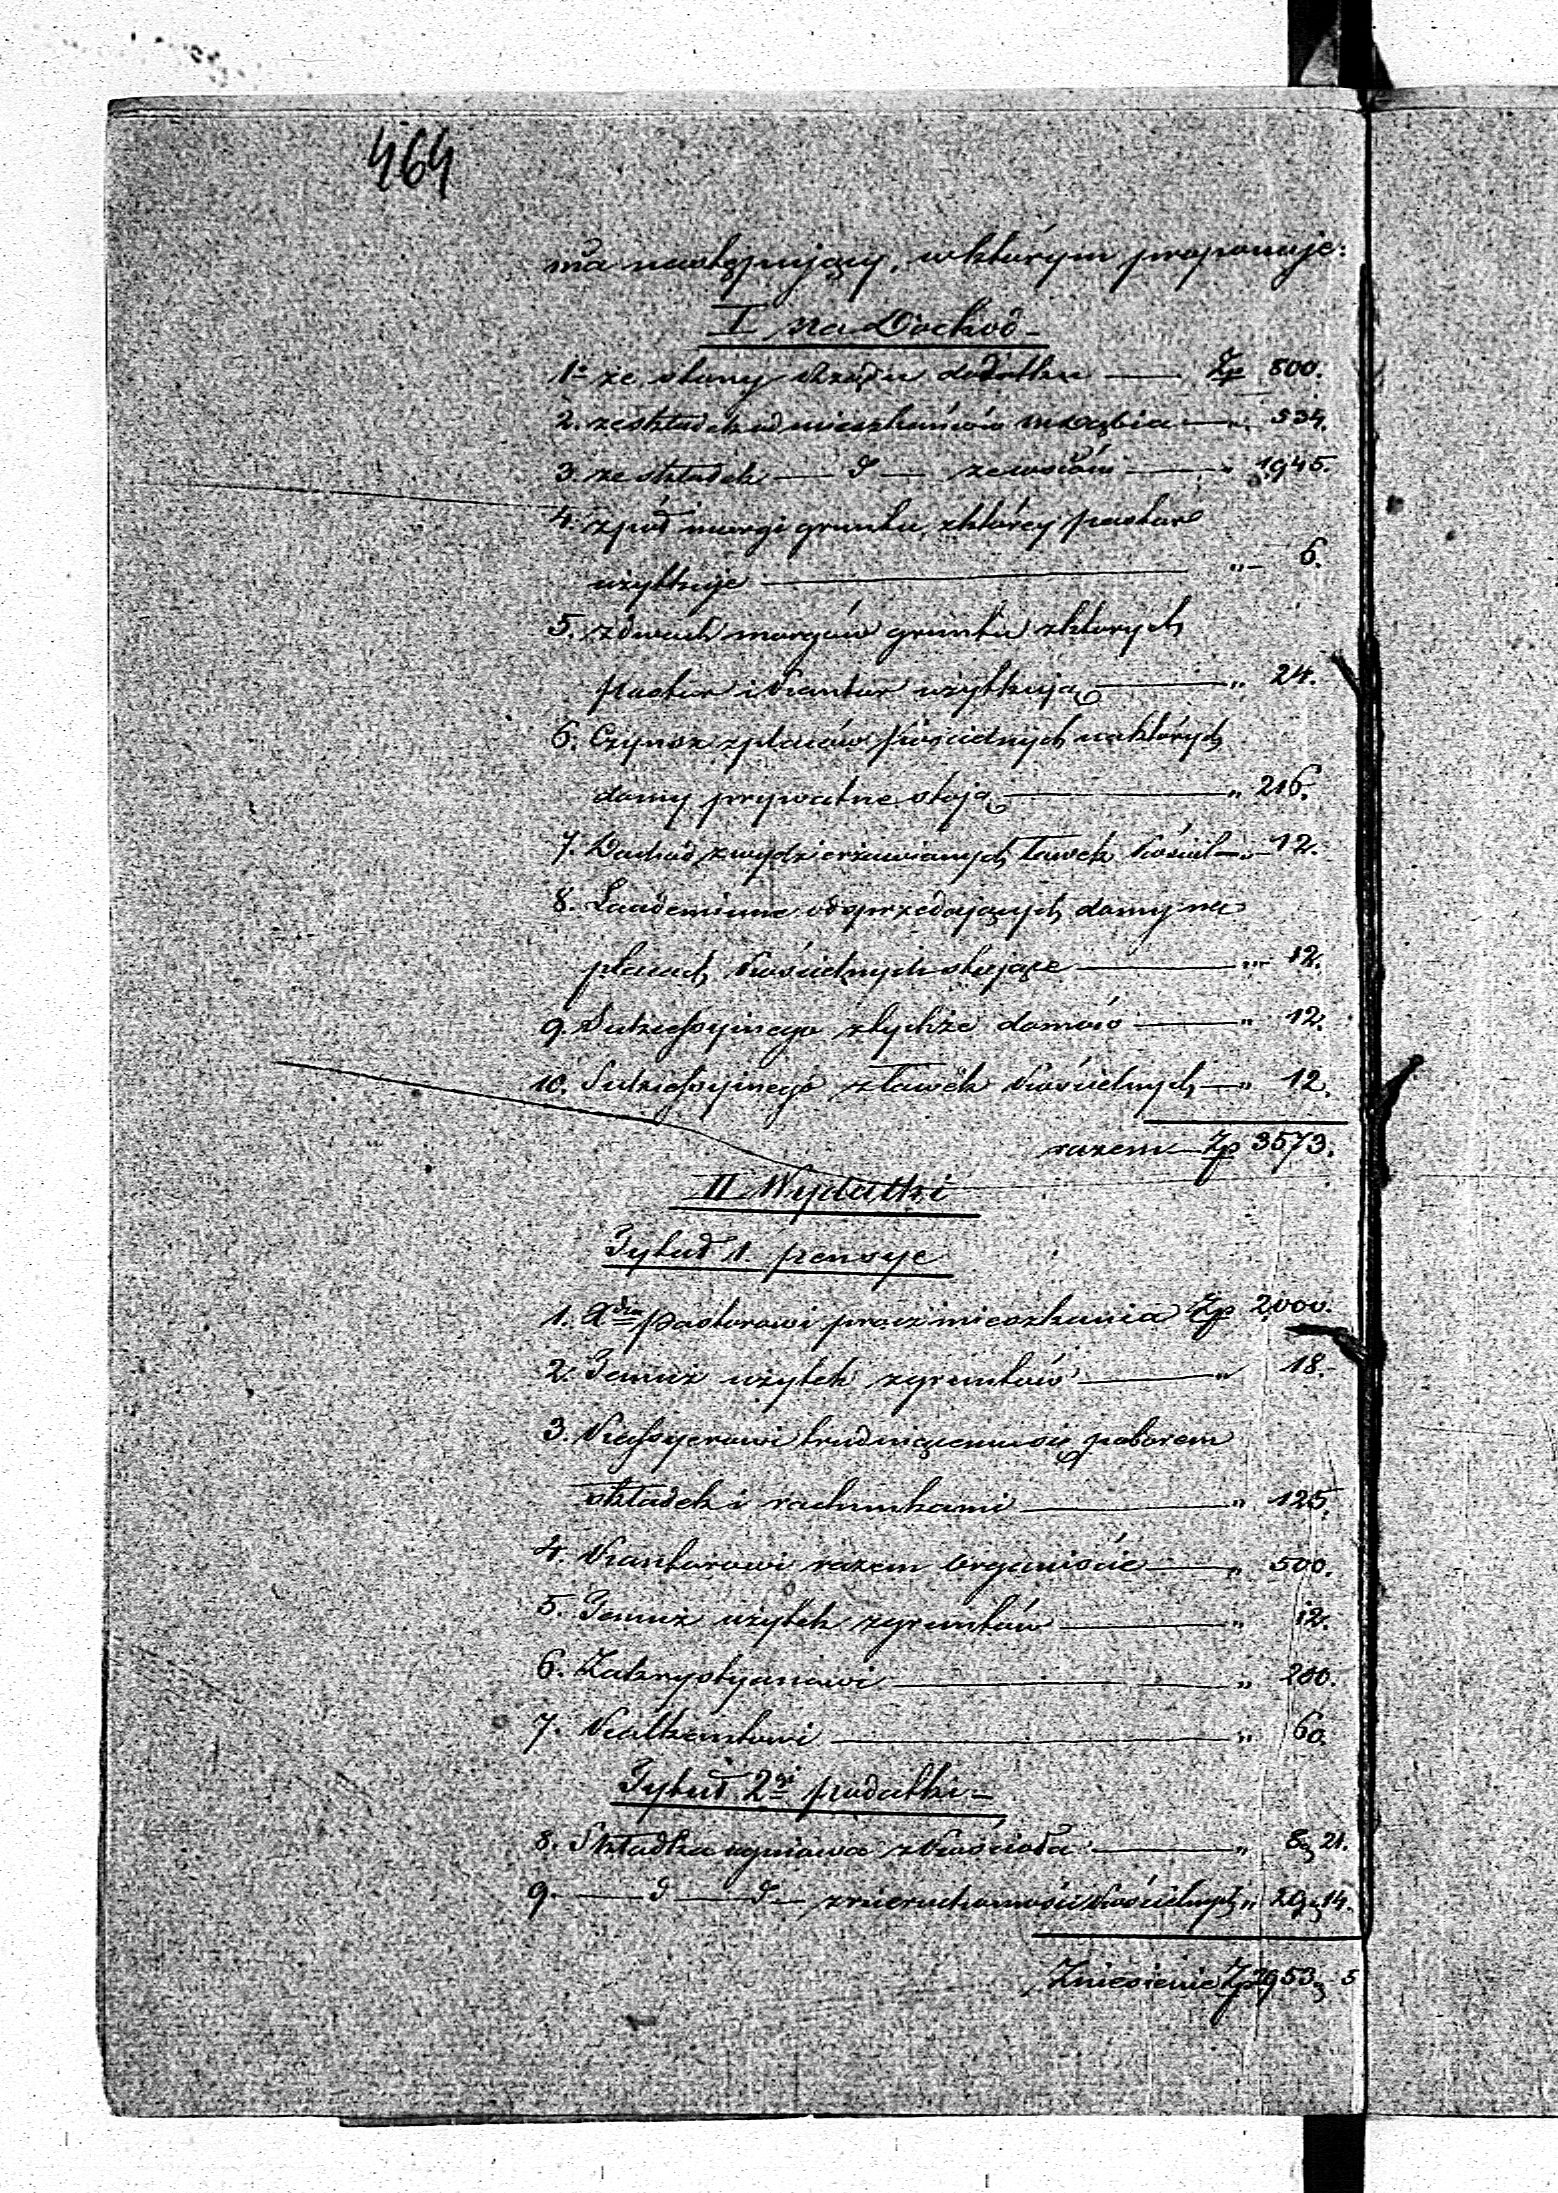 464
ma następujący, w którym proponuje:
I na Dochód
1. ze strony Rządu dodatku — Zp 800.
2. ze składek od mieszkańców m Dąbia — „ 534.
3. ze składek — d — ze wsiów — „ 1945.
4. z pół morgi gruntu, z któréy pastor
użytkuje — „ 6.
5. z dwóch morgów gruntu z których
Pastor i Kantor użytkują — „ 24.
6. Czynsz z placów Kościelnych na których
domy prywatne stoją — „ 216.
7. Dochód z wydzierżawianych ławek Kościel — „ 12.
8. Laudemium od sprzedających domy na
placach Kościelnych stojące — „ 12.
9. Sukcessyinego z tychże domów — „ 12.
10. Sukcessyinego z ławek Kościelnych — „ 12.
razem — Zp 3573.
II Wydatki
Tytuł 1. pensye
1. Xdzu Pastorowi prócz mieszkania Zp 2000.
2. Temuż użytek z gruntów — „ 18.
3. Kassyerowi trudniącemu się poborem
składek i rachunkami — „ 125.
4. Kantorowi razem Organiście — „ 500.
5. Temuż użytek z gruntów — „ 12.
6. Zakrystyanowi — „ 200.
7. Kalkantowi — „ 60.
Tytuł 2gi podatki —
8. Składka ogniowa z Kościoła — „ 8 g 21.
9. — d — d — z nieruchomości Kościelnych „ 29 g 14.
Zniesienie Zp 2953 g 5